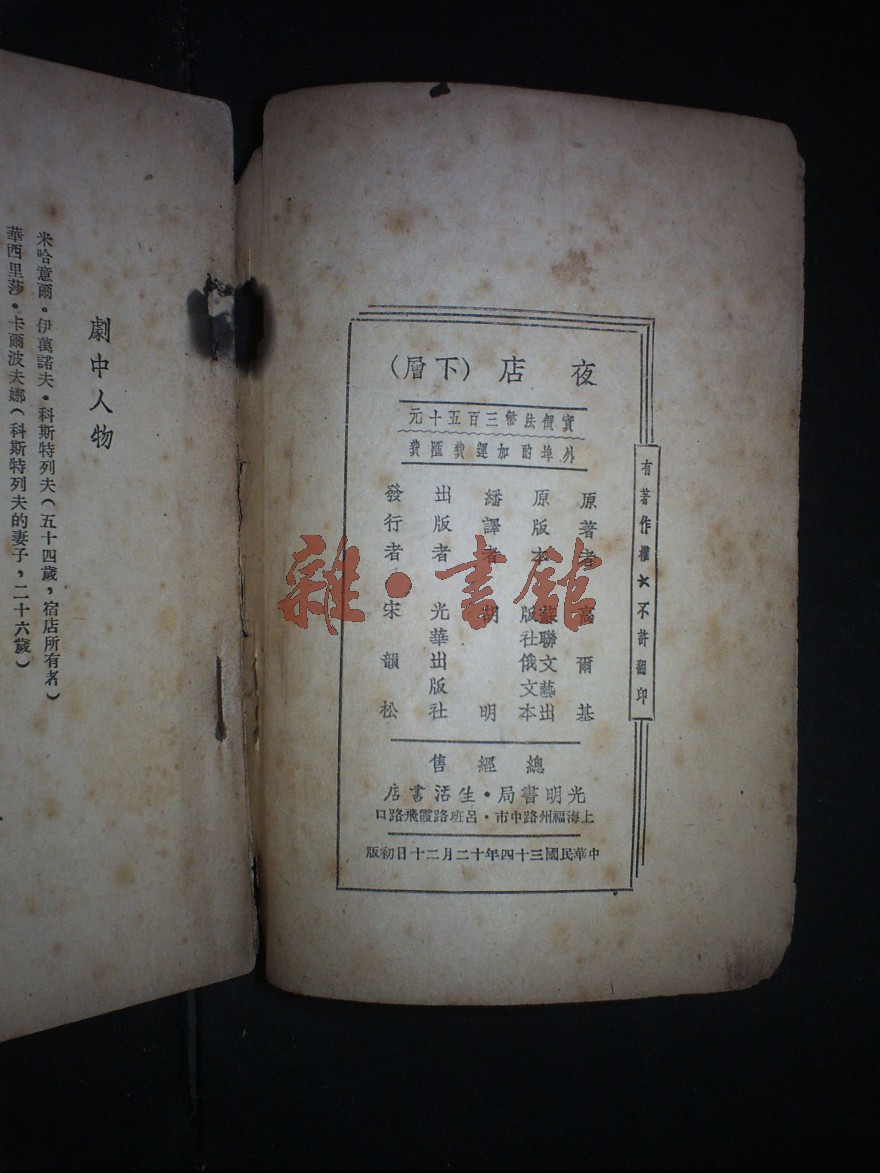 夜店(下層)
實價法幣三百五十元
外埠酌加運費匯費
原著者 高爾基
原版本 蘇聯文藝出
版社俄文本
繙譯者 胡明
出版者 光華出版社
發行者 宋韻松
總經售
光明書局・生活書店
上海福州路中市・呂班路霞飛路口
中華民國三十四年十二月二十日初版
有著作權★不許翻印
劇中人物
米哈意爾・伊萬諾夫・科斯特列夫(五十四歲,宿店所有者)
華西里莎・卡爾波夫娜(科斯特列夫的妻子,二十六歲)
雜・書館